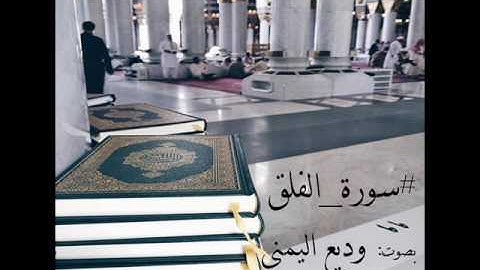 #سورة_الفلق
بصوت: وديع اليمني